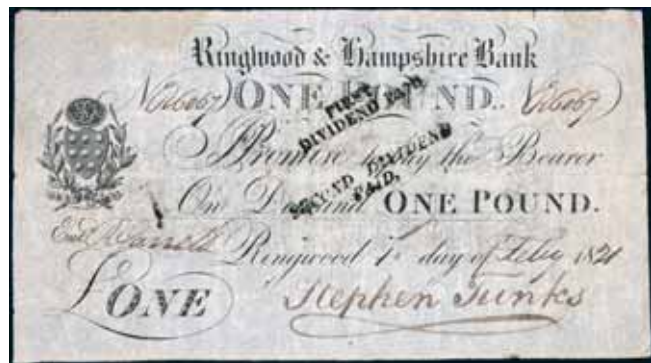 Ringwood & Hampshire Bank
ONE POUND.
FIRST
DIVIDEND PAID
I Promise to pay the Bearer
SECOND DIVIDEND
PAID.
On Demand ONE POUND.
Ringwood day of Feby 1821
£ONE Stephen Tunks